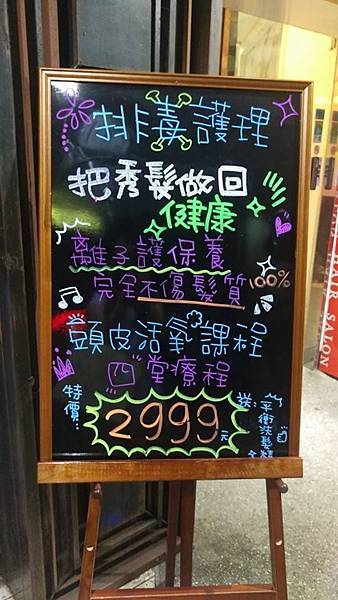 排毒護理
把秀髮做回
健康
離子護保養
完全不傷髮質100%
頭皮活氧課程
四堂療程
特價...
2999元
送:平衡洗髮精
HAIR SALON